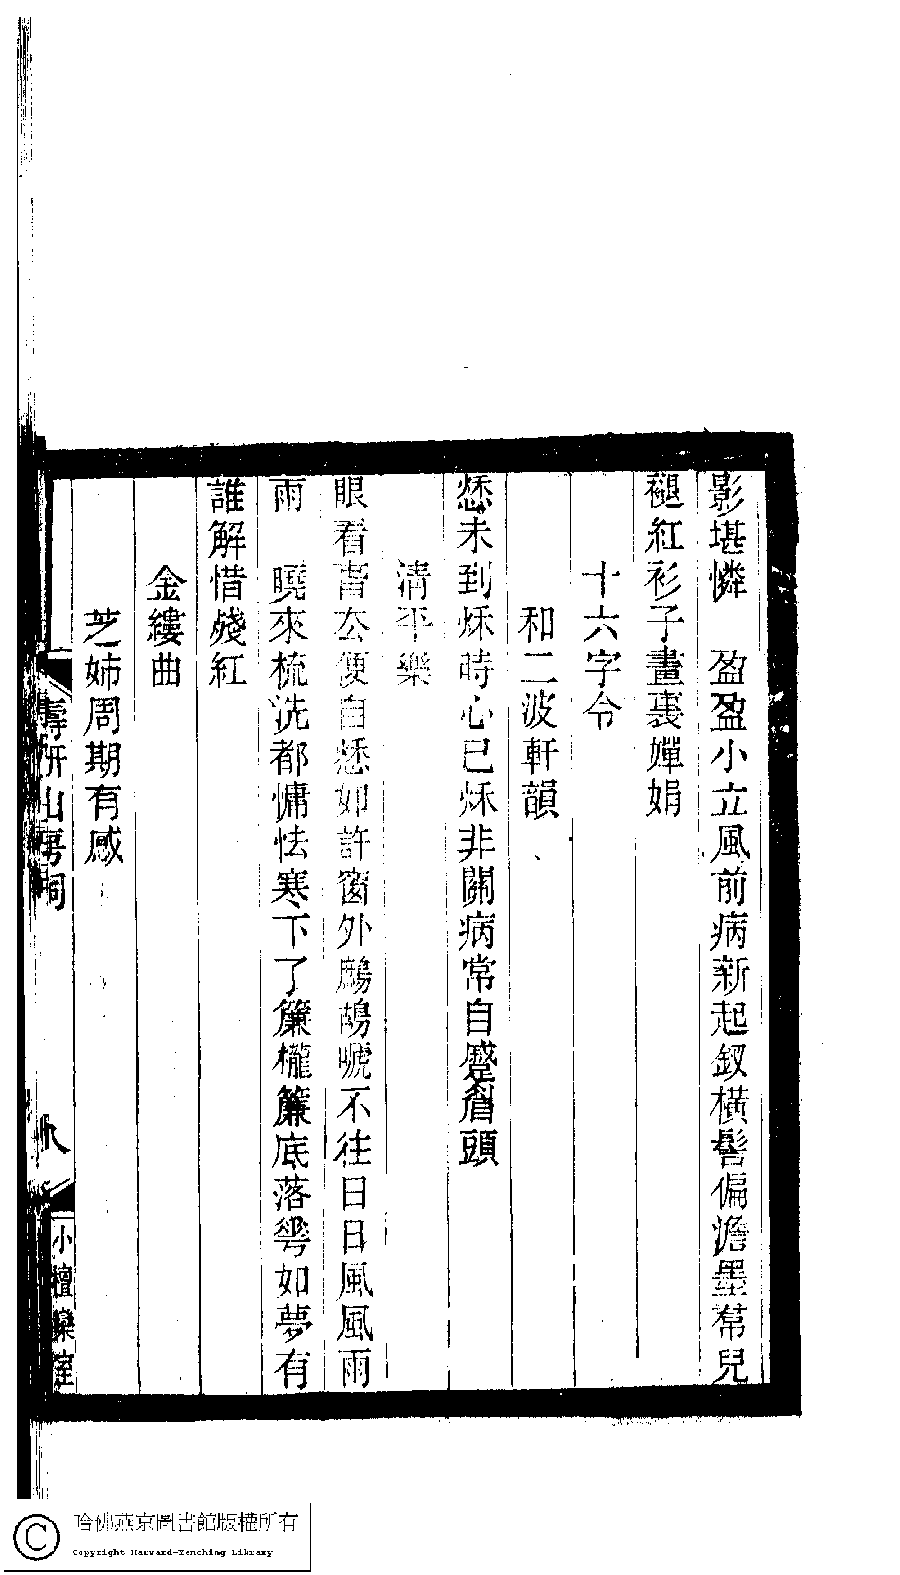 影堪憐　盈盈小立風前病新起釵橫髻偏澹墨帬兒
褪紅衫子畫裏嬋娟
十六字令
和二波軒韻
愁未到秌時心已秌非關病常自蹙眉頭
清平樂
眼看春去便自愁如許窗外鷓鴣嗁不住日日風風雨
雨　曉來梳洗都慵怯寒下了簾櫳簾底落蕚如夢有
誰解惜殘紅
金縷曲
芝姊周期有感
壽研山房詞
九
小檀欒室
哈佛燕京圖書館版權所有
Copyright Harvard-Yenching Library